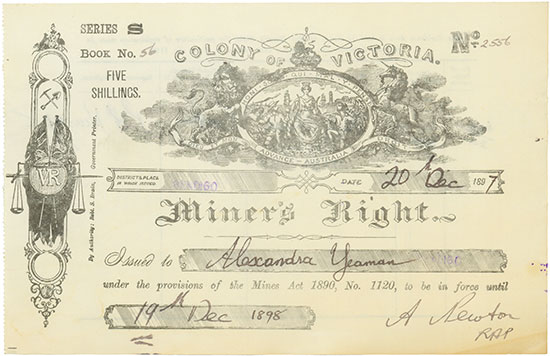 SERIES S
BOOK No. 56
No. 2556
COLONY OF VICTORIA.
FIVE
SHILLINGS.
ADVANCE AUSTRALIA
DISTRICT & PLACE
IN WHICH ISSUED
DATE 20th Dec 1897
Miner's Right.
Issued to Alexandra Yeaman
under the provisions of the Mines Act 1890, No. 1120, to be in force until
19th Dec 1898
A Newton
By Authority: Robt. S. Brain, Government Printer.
VR